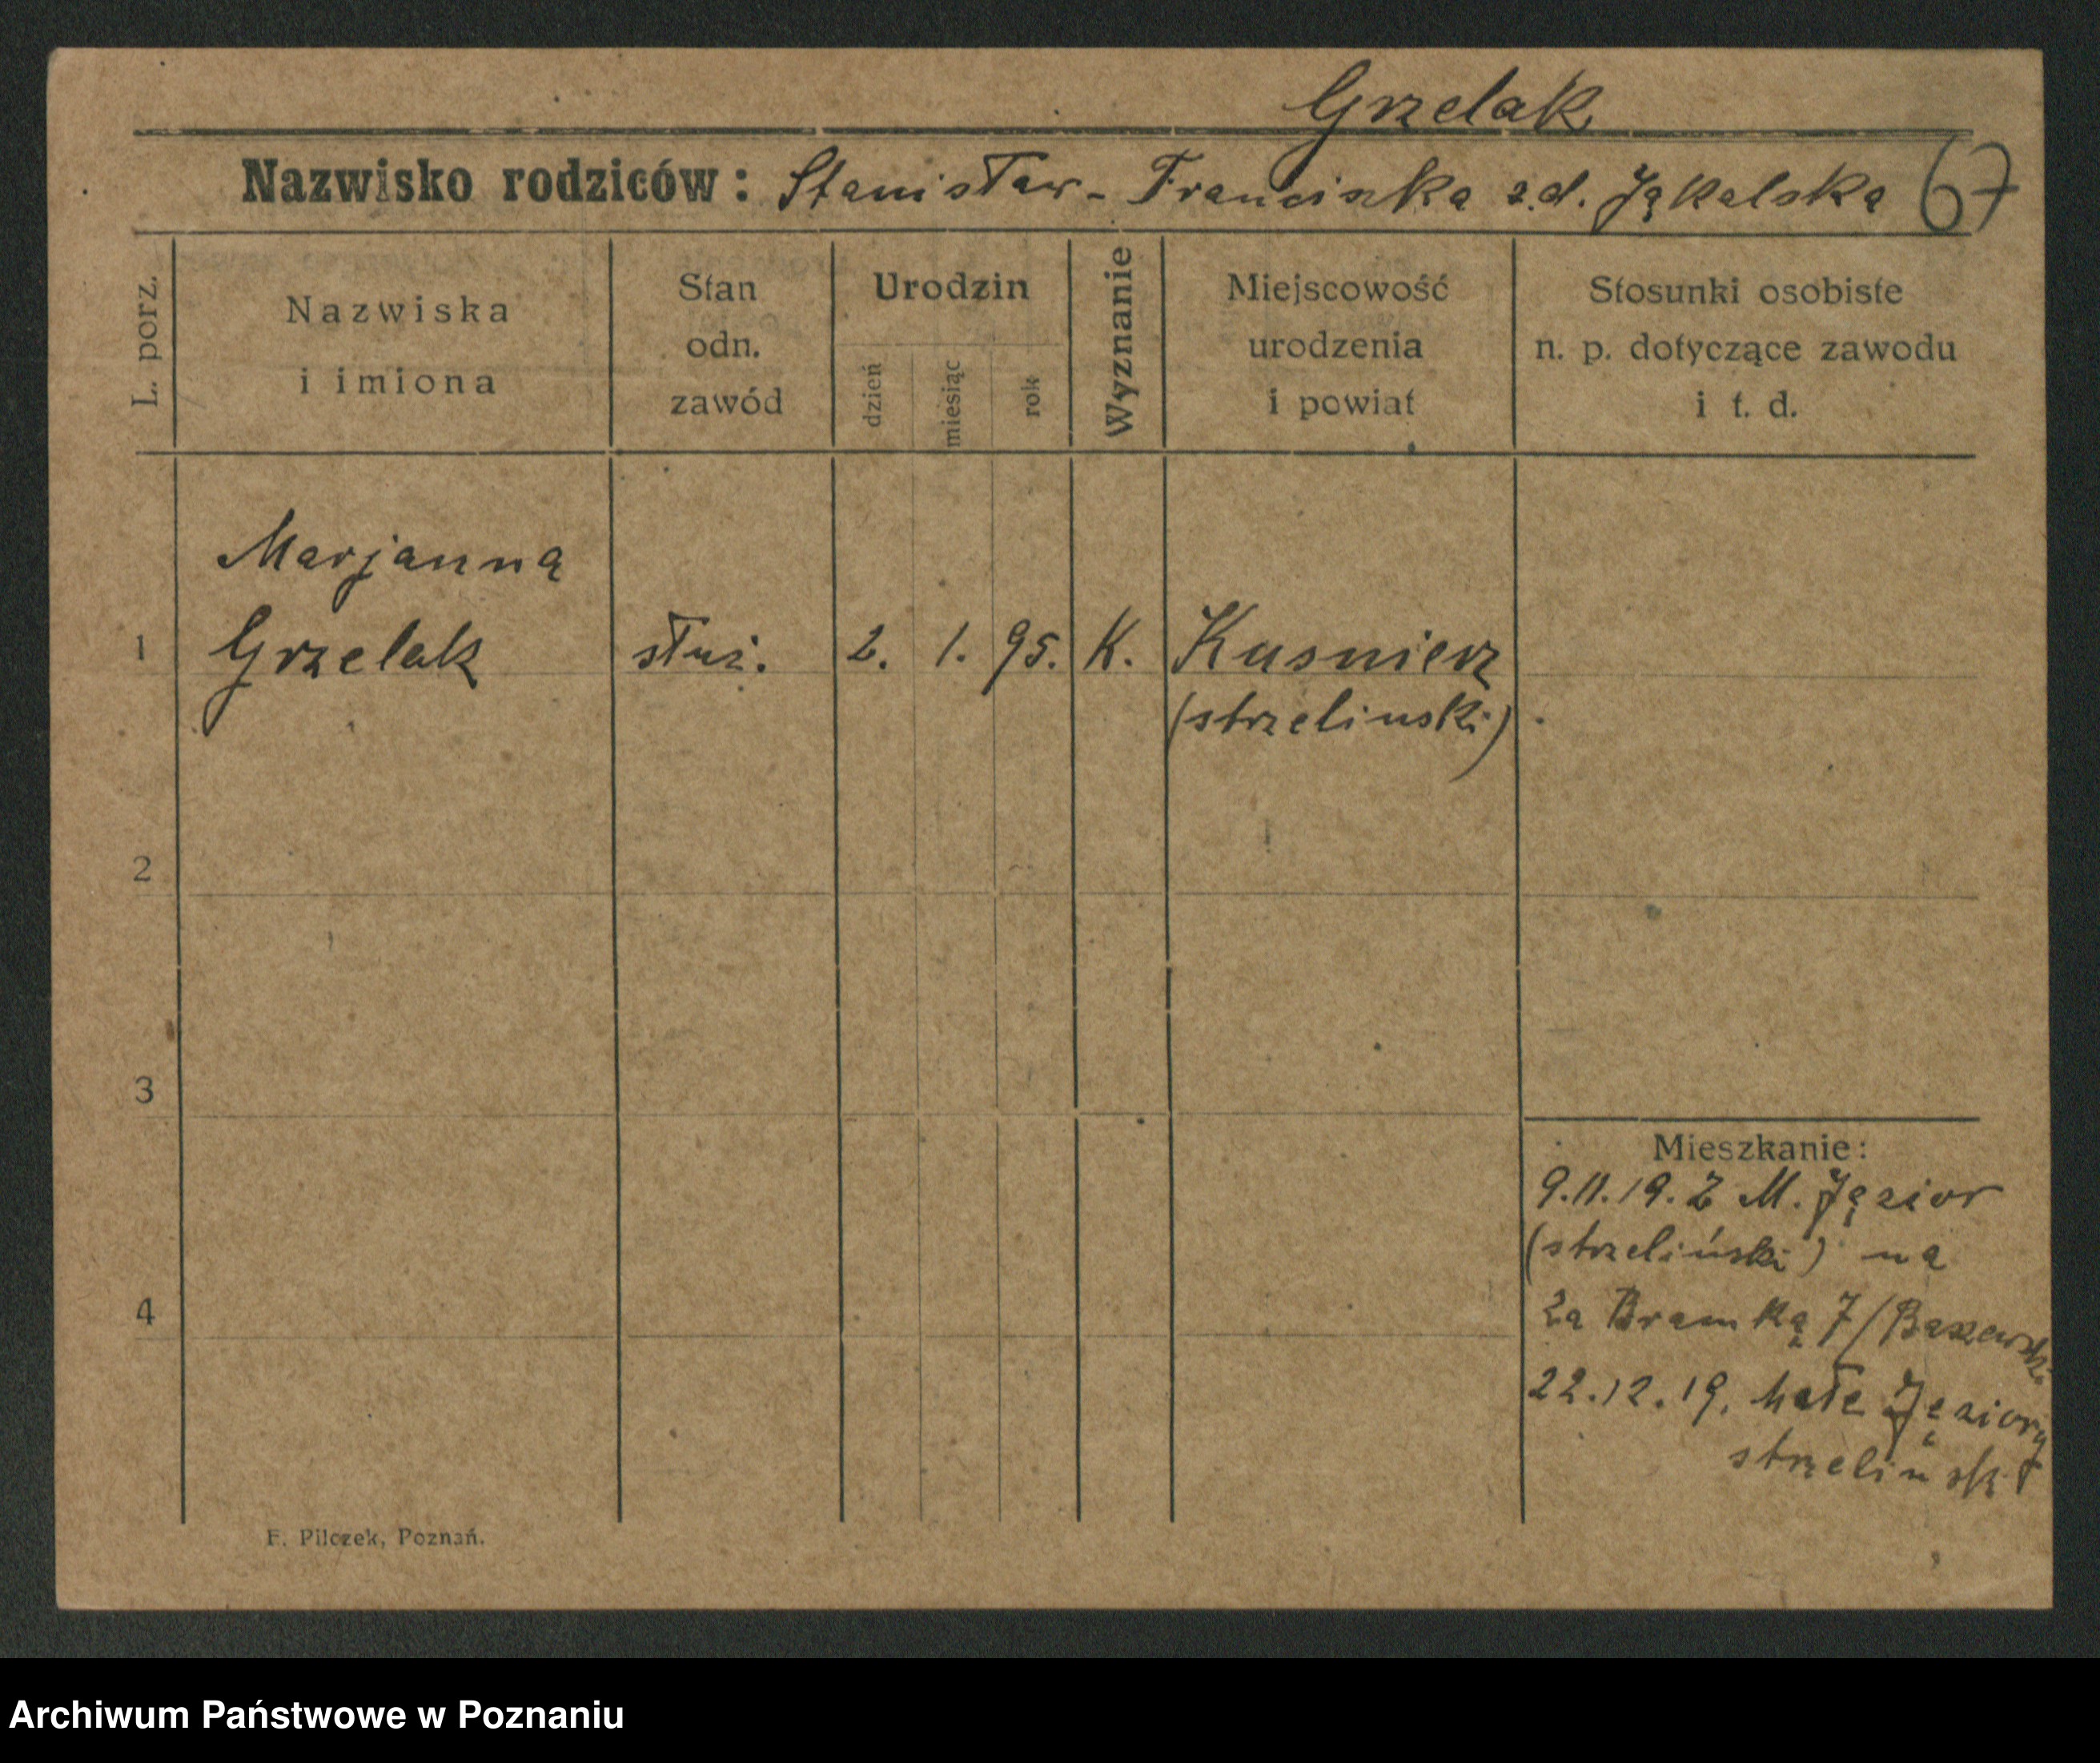 Grzelak
Nazwisko rodziców: Stanisław - Franciszka z.d. Jąkalska 67
L. porz.
Nazwiska
i imiona
Stan
odn.
zawód
Urodzin
dzień
miesiąc
rok
Wyznanie
Miejscowość
urodzenia
i powiat
Stosunki osobiste
n. p. dotyczące zawodu
i t. d.
Marjanna
1 Grzelak służ. 2. 1. 95. K. Kusnierz
(strzelinski)
2
3
4
Mieszkanie:
9.11.19. Z M. Jęzior
(strzeliński) na
Za Bramką 7/
22.12.19. Małe Jęziory
strzelinski
F. Pilczek, Poznań.
Archiwum Państwowe w Poznaniu